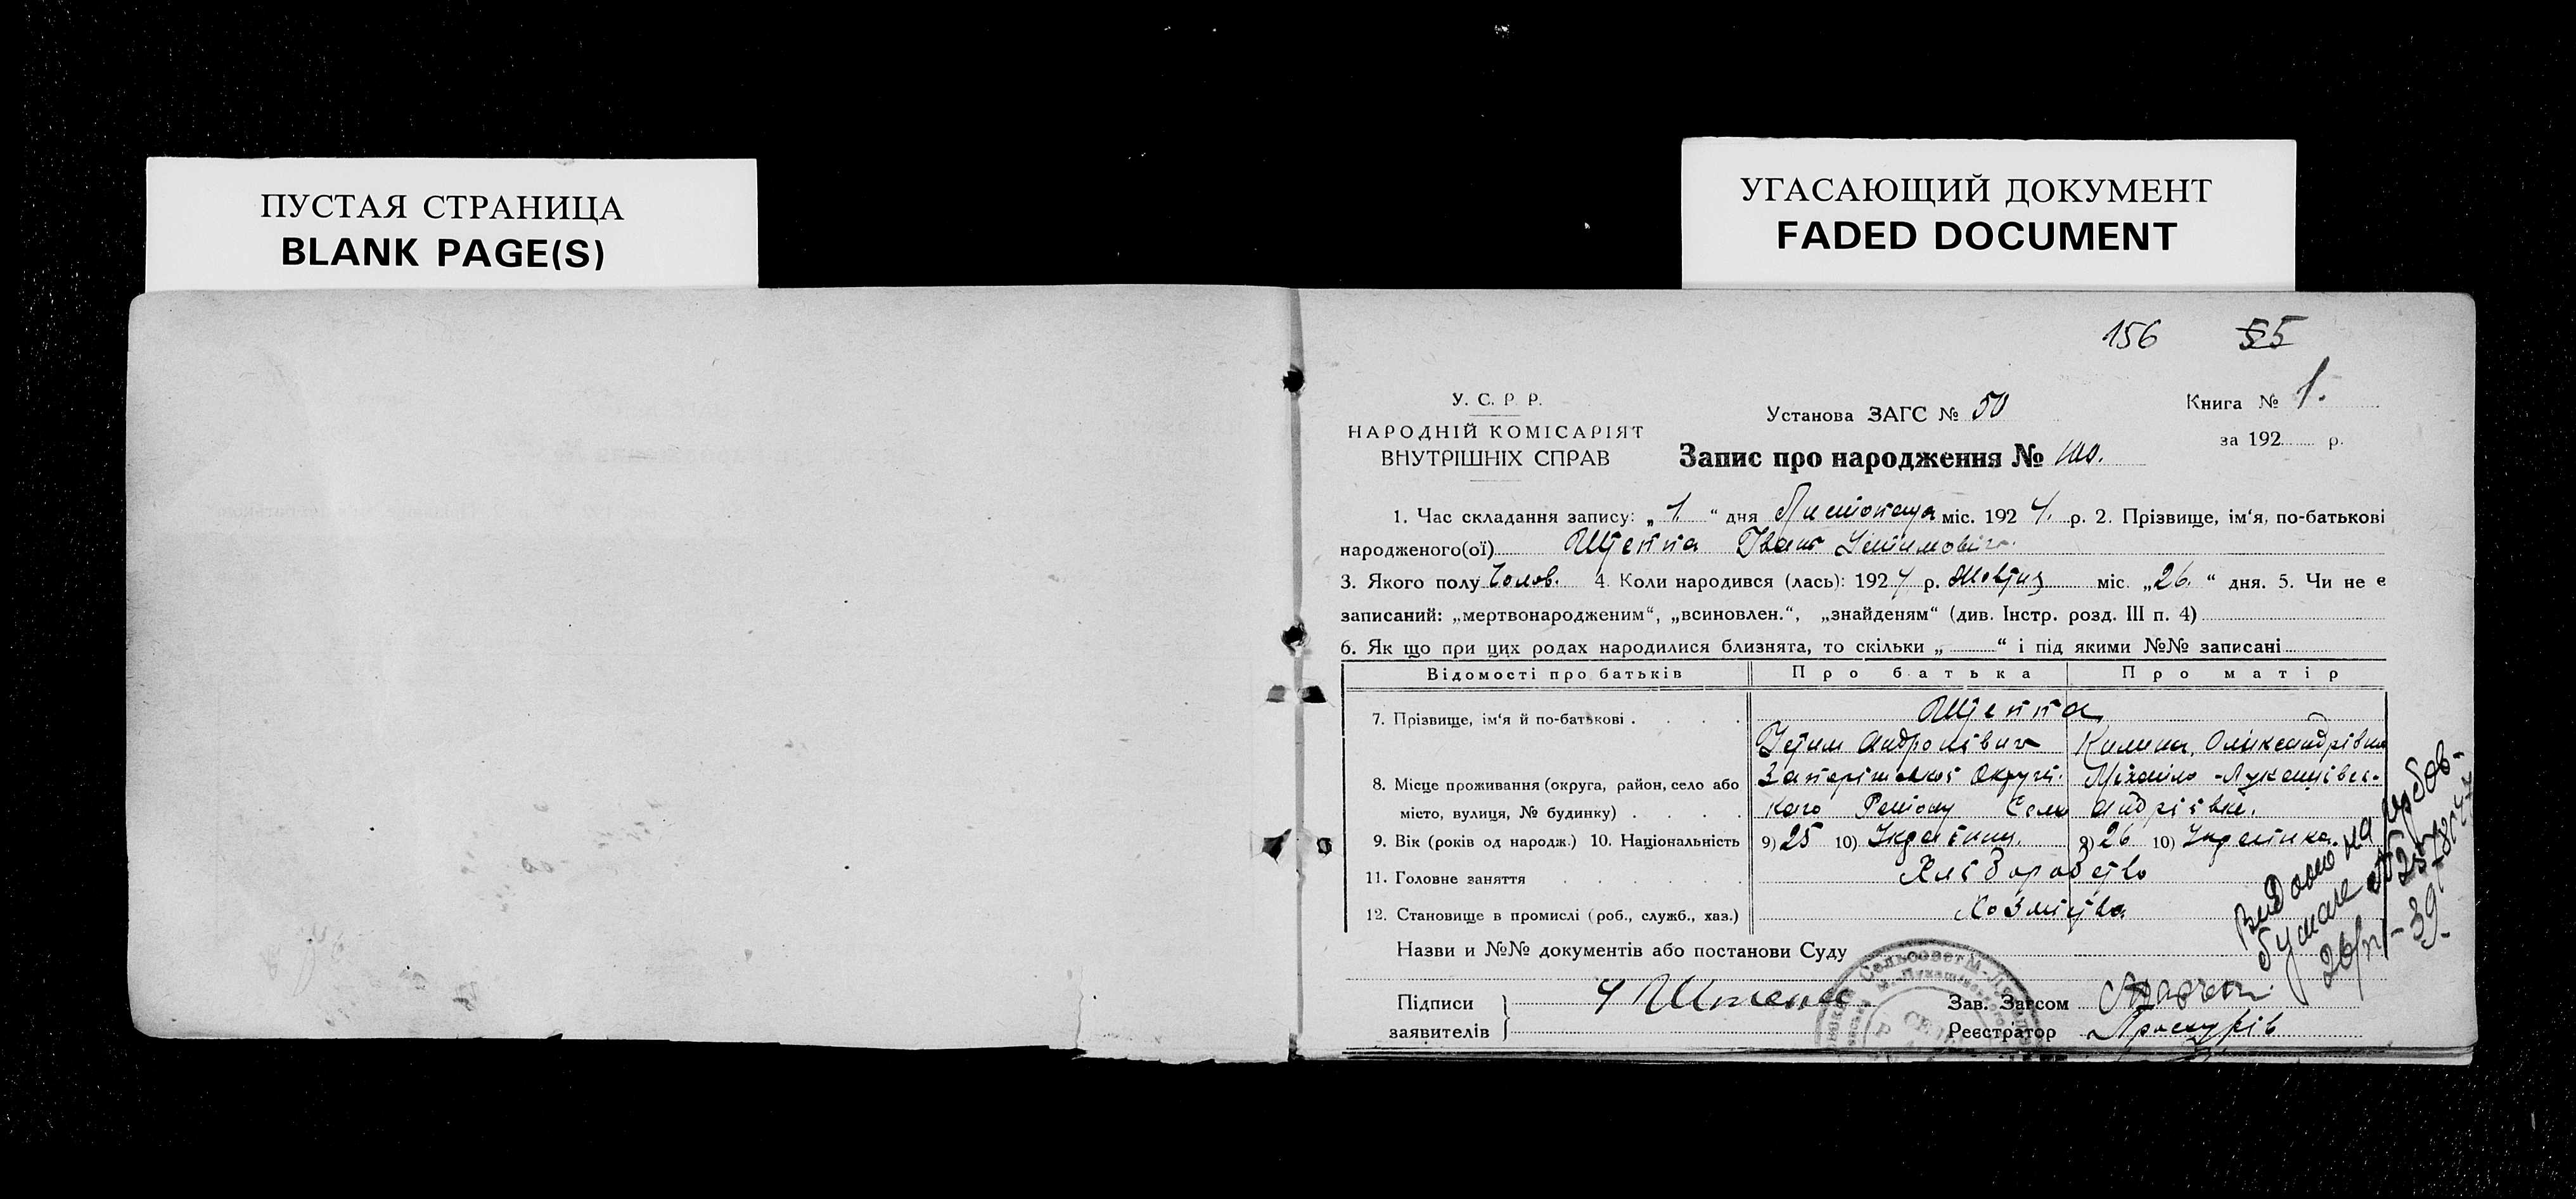 ПУСТАЯ СТРАНИЦА
BLANK PAGE(S)
УГАСАЮЩИЙ ДОКУМЕНТ
FADED DOCUMENT
156 55
У. С. Р. Р.
НАРОДНІЙ КОМІСАРІЯТ
ВНУТРІШНІХ СПРАВ
Установа ЗАГС № 50
Книга № 1.
за 192 р.
Запис про народження № 100.
1. Час складання запису: „ 1. “ дня Листопада міс. 192 4. р. 2. Прізвище, ім'я, по-батькові
народженого(ої) Щеппа Іван Устимович.
3. Якого полу Чолов. 4. Коли народився (лась): 192 4 р. Жовтня міс. „ 26. “ дня. 5. Чи не є
записаний: „мертвонародженим“, „всиновлен.“, „знайденям“ (див. Інстр. розд. III п. 4)
6. Як що при цих родах народилися близнята, то скільки „ “ і під якими №№ записані
Відомості про батьків Про батька Про матір
7. Прізвище, ім'я й по-батькові Щеппа
Устим Андронівич Килина, Олександрівна
8. Місце проживання (округа, район, село або Запоріжської Округи. Михайло-Лукашівсь-
місто, вулиця, № будинку) кого Району Село Андріївка.
9. Вік (років од народж.) 10. Національність 9) 25 10) Українець. 9) 26 10) Українка.
11. Головне заняття Хліборобство
12. Становище в промислі (роб., служб., хаз.) Хозяїства
Назви и №№ документів або постанови Суду
Підписи
заявителів
Зав. Загсом
Реєстратор Проскурів
Видано на гербов-
бумаге № 257
26/ -39